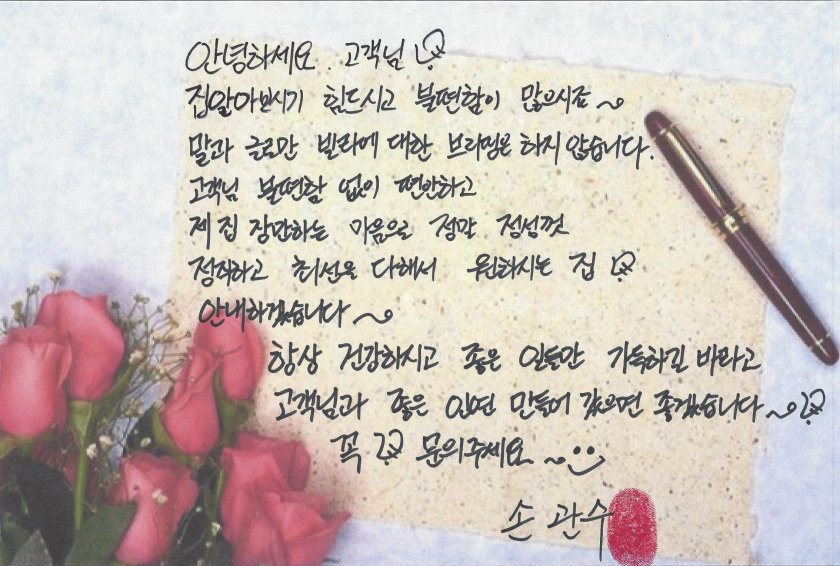 안녕하세요. 고객님 ♡
집알아보시기 힘드시고 불편함이 많으시죠~
말과 글로만 빌라에 대한 브리핑은 하지 않습니다.
고객님 불편함 없이 편안하고
제 집 장만하는 마음으로 정말 정성껏
정직하고 최선을 다해서 원하시는 집 ♡
안내하겠습니다~
항상 건강하시고 좋은 일들만 가득하길 바라고
고객님과 좋은 인연 만들어 갔으면 좋겠습니다~♡
꼭 ♡ 문의주세요~
손관수